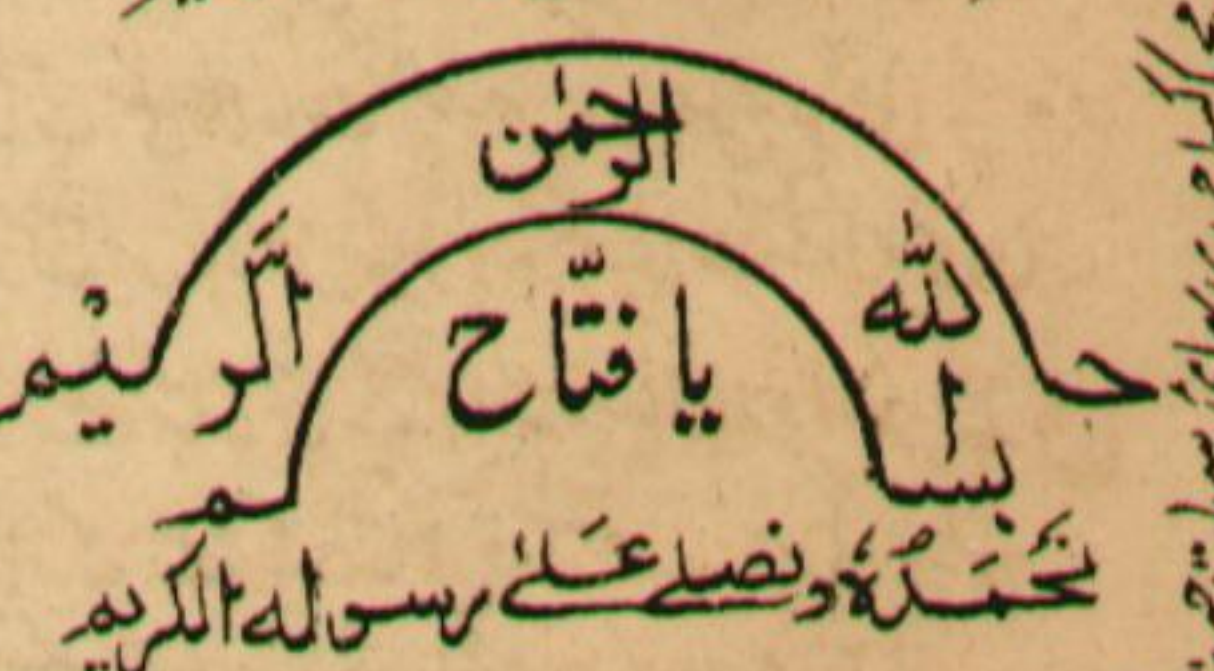 بسم الله الرحمٰن الرحیم
یا فتّاح
نَحْمَدُہٗ و نصلی عَلیٰ رسوله الکریم